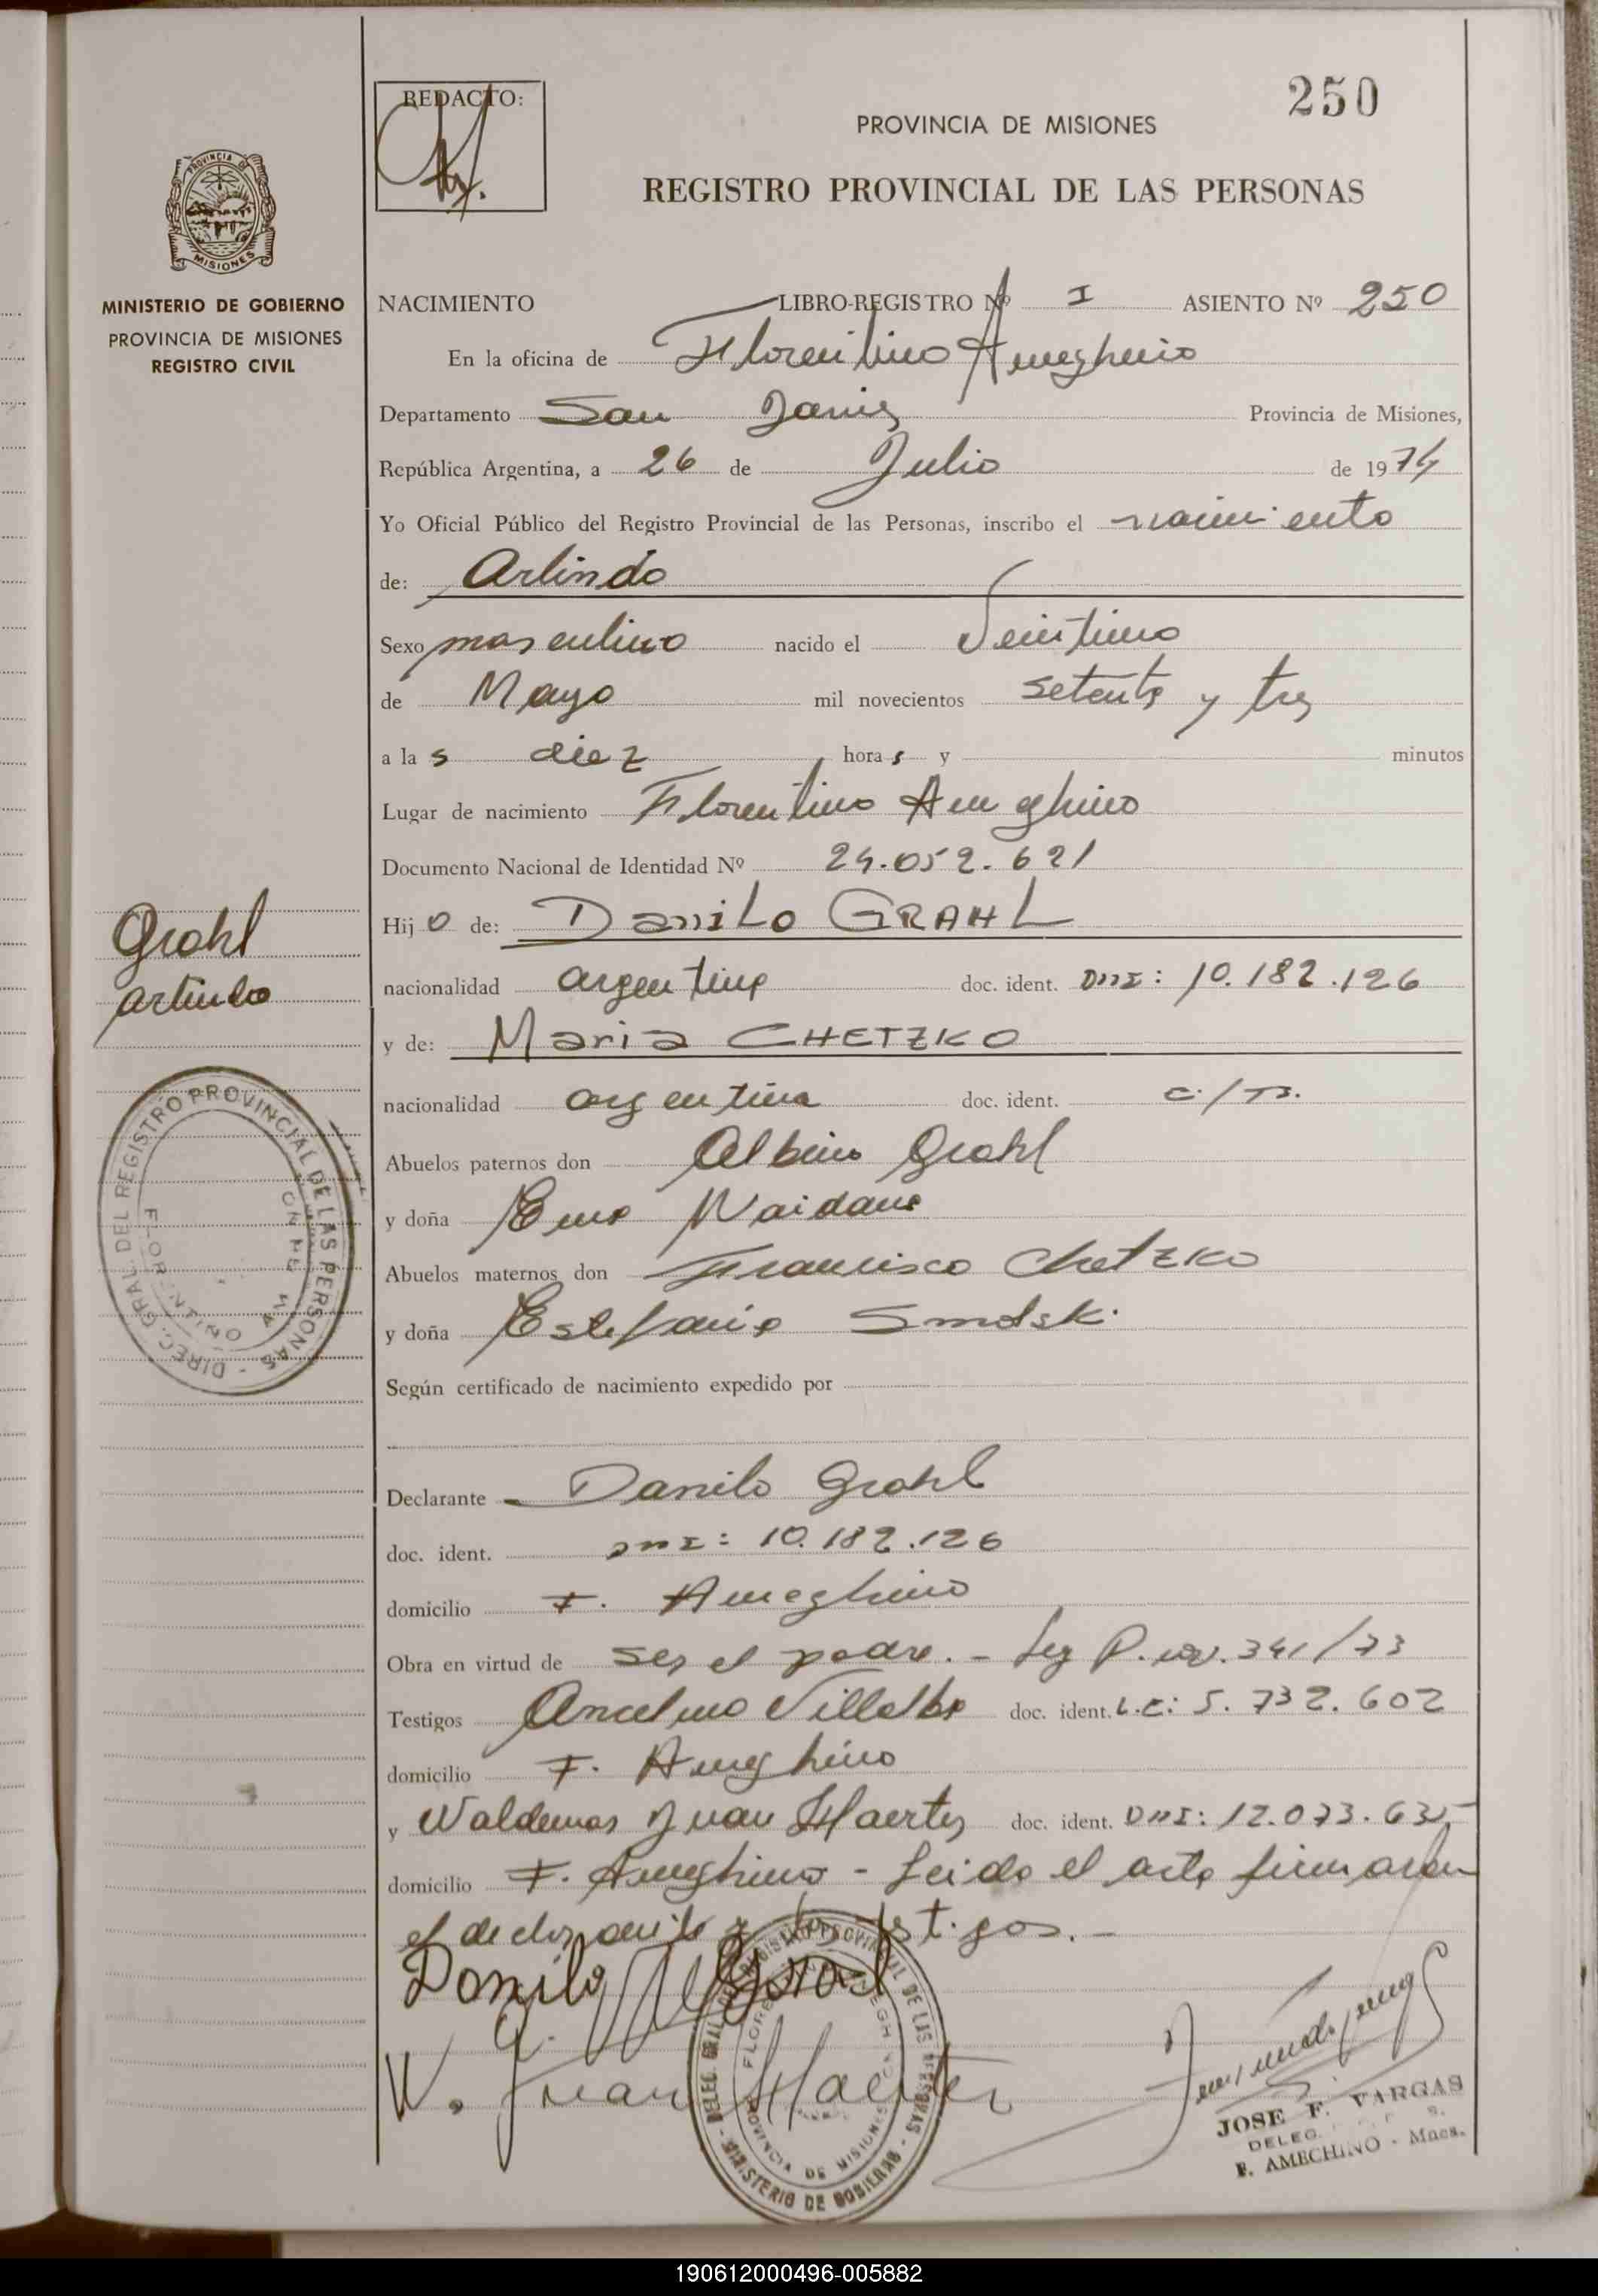 250
REDACTO:
PROVINCIA DE MISIONES
REGISTRO PROVINCIAL DE LAS PERSONAS
PROVINCIA DE
MISIONES
MINISTERIO DE GOBIERNO
PROVINCIA DE MISIONES
REGISTRO CIVIL
NACIMIENTO LIBRO-REGISTRO Nº I ASIENTO Nº 250
En la oficina de Florentino Ameghino
Departamento San Javier Provincia de Misiones,
República Argentina, a 26 de Julio de 1974
Yo Oficial Público del Registro Provincial de las Personas, inscribo el nacimiento
de: Arlindo
Sexo masculino nacido el
de Mayo mil novecientos setenta y tres
a las diez horas y minutos
Lugar de nacimiento Florentino Ameghino
Documento Nacional de Identidad Nº 24.052.621
Hijo de: Danilo GRAHL
nacionalidad argentina doc. ident. DNI: 10.182.126
y de: Maria CHETZKO
nacionalidad argentina doc. ident.
Abuelos paternos don Albino Grahl
y doña Ema
Abuelos maternos don Francisco Chetzko
y doña Estefania
Según certificado de nacimiento expedido por
Declarante Danilo Grahl
doc. ident. DNI: 10.182.126
domicilio F. Ameghino
Obra en virtud de ser el padre. - Ley P. 341/73
Testigos Ancelmo Villalba doc. ident. L.E: 5.732.602
domicilio F. Ameghino
y Waldemar Juan Haerter doc. ident. DNI: 12.073.635
domicilio F. Ameghino - Leida el acta firmaran
el declarante y los testigos. -
Grahl
Arlindo
DIREC. GRAL. DEL REGISTRO PROVINCIAL DE LAS PERSONAS
FLORENTINO
Danilo Grahl
W. Juan Haerter
MINISTERIO DE GOBIERNO
PROVINCIA DE MISIONES
JOSE F. VARGAS
DELEG.
F. AMECHINO - Mnes.
190612000496-005882